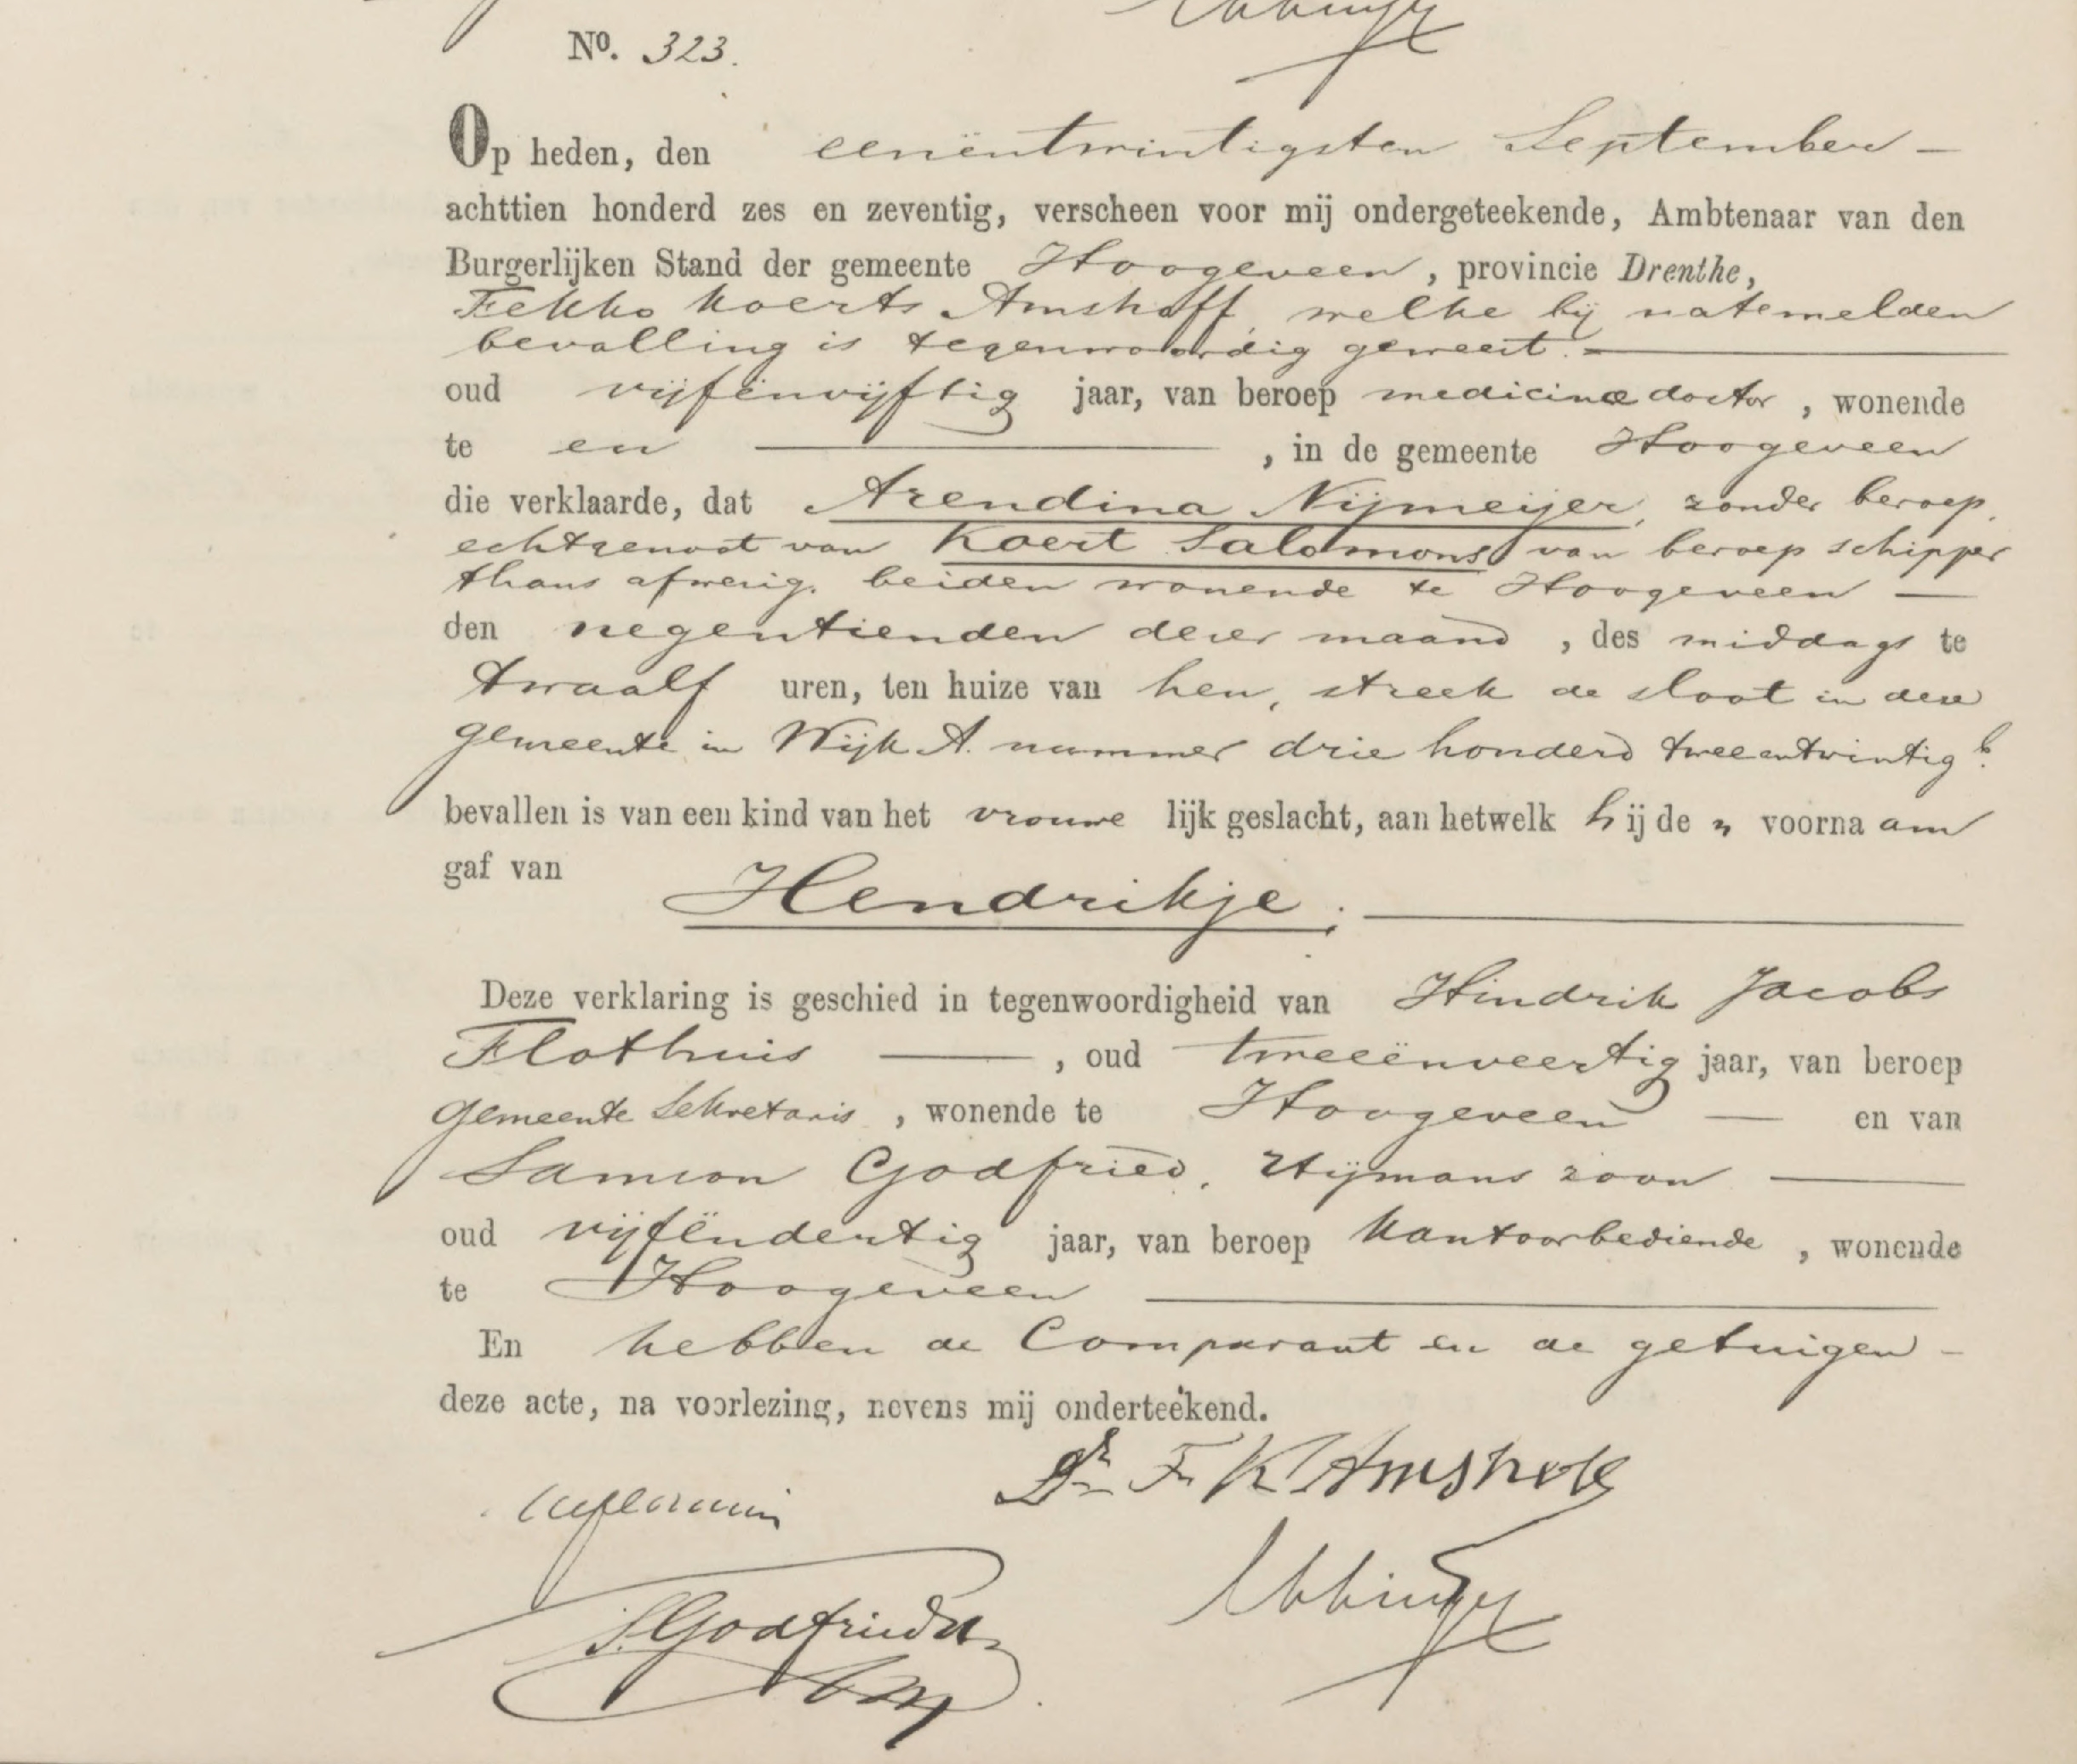 No. 323.
Op heden, den eenëntwintigsten September -
achttien honderd zes en zeventig, verscheen voor mij ondergeteekende, Ambtenaar van den
Burgerlijken Stand der gemeente Hoogeveen, provincie Drenthe,
Fekko Koerts Amshoff, welke bij natemelden
bevalling is tegenwoordig geweest. -
oud vijfënvijftig jaar, van beroep medicinae doctor, wonende
te en —, in de gemeente Hoogeveen
die verklaarde, dat Arendina Nijmeijer, zonder beroep,
echtgenoot van Koert Salomons van beroep schipper
thans afwezig, beiden wonende te Hoogeveen —
den negentienden dezer maand, des middags te
twaalf uren, ten huize van hen, streek de sloot in deze
gemeente in Wijk A. nummer drie honderd tweeentwintig b.
bevallen is van een kind van het vrouwelijk geslacht, aan hetwelk hij den voornaam
gaf van
Hendrikje; —
Deze verklaring is geschied in tegenwoordigheid van Hindrik Jacobs
Flothuis —, oud tweeënveertig jaar, van beroep
gemeente Sekretaris, wonende te Hoogeveen — en van
Samson Godfried, Hijmans zoon —
oud vijfëndertig jaar, van beroep kantoorbediende, wonende
te Hoogeveen —
En hebben de Comparant en de getuigen -
deze acte, na voorlezing, nevens mij onderteekend.
Dr. F K Amshoff
S. Godfried